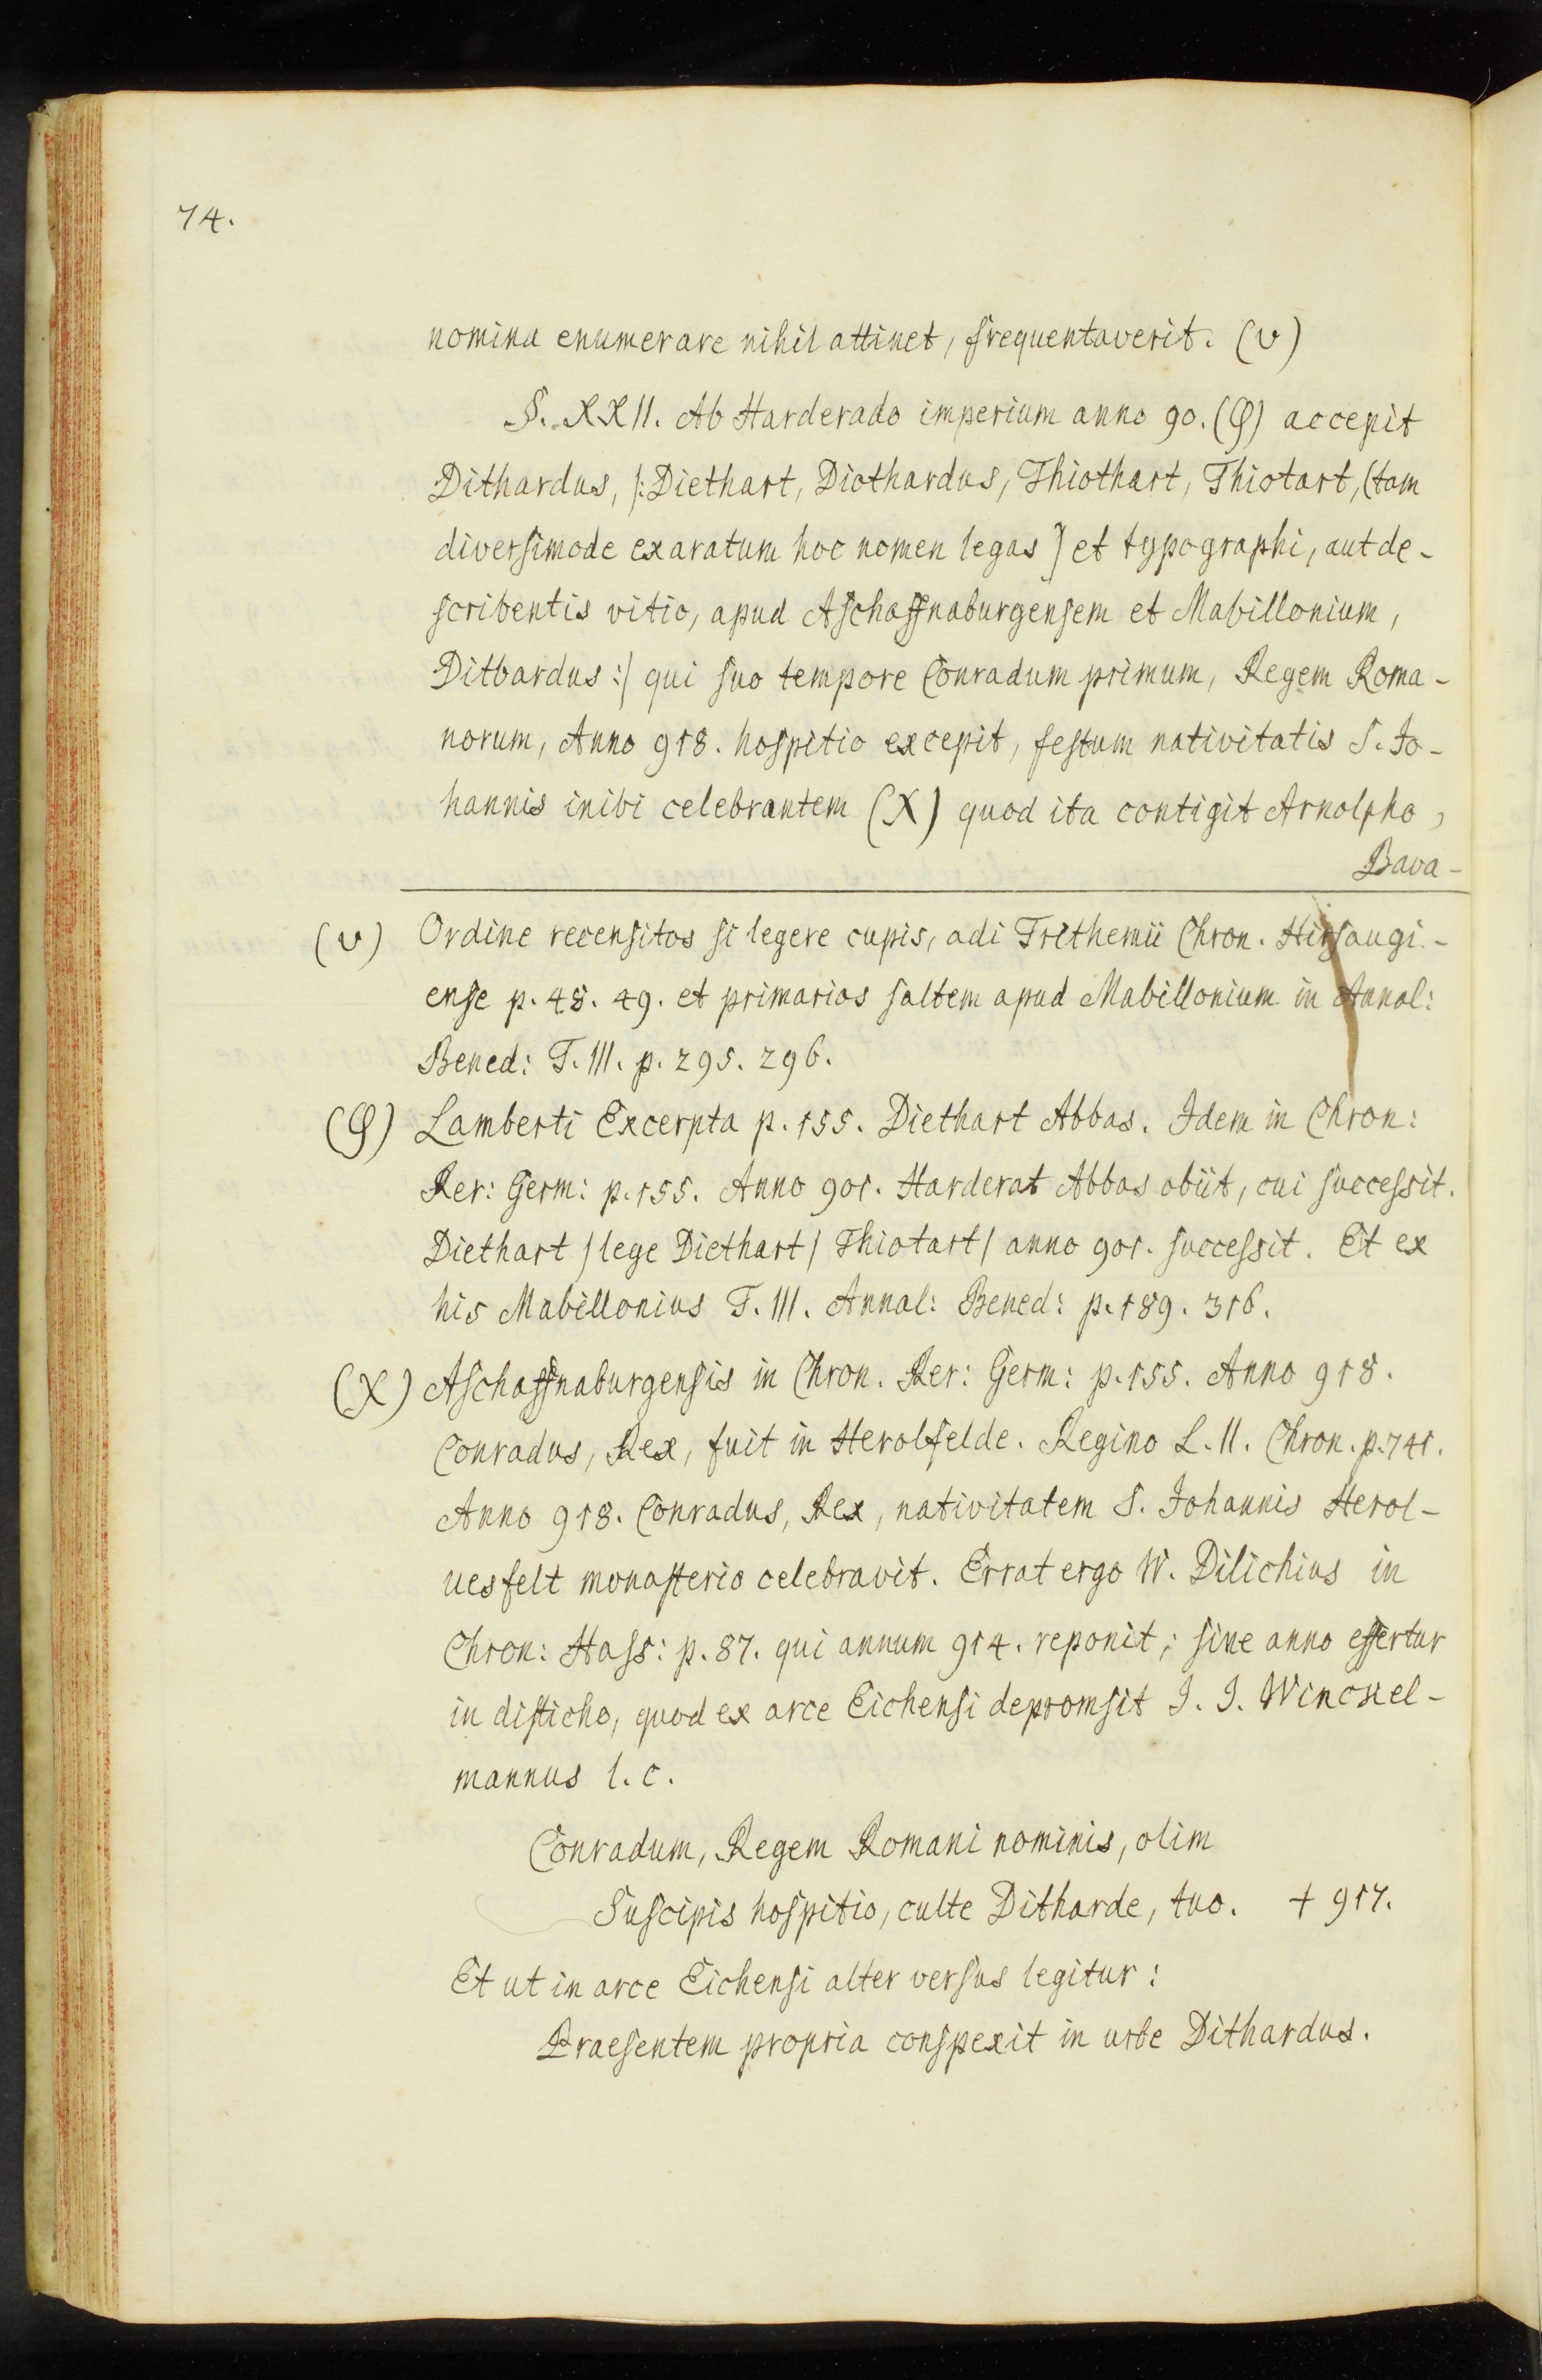 74.
nomina enumerare nihil attinet, frequentaverit. (v)
§. XXII. Ab Harderado imperium anno 90. (φ) accepit
Dithardus, |: Diethart, Diothardus, Thiothart, Thiotart, (tam
diversimode exaratum hoc nomen legas) et typographi, aut de-
scribentis vitio, apud Aschaffnaburgensem et Mabillonium,
Ditbardus :| qui suo tempore Conradum primum, Regem Roma-
norum, Anno 918. hospitio excepit, festum nativitatis S. Jo-
hannis inibi celebrantem (X) quod ita contigit Arnolpho,
Bava-
(v) Ordine recensitos si legere cupis, adi Trithemii Chron. Hirsaugi-
ense p. 48. 49. et primarios saltem apud Mabillonium in Annal:
Bened: T. III. p. 295. 296.
(φ) Lamberti Excerpta p. 155. Diethart Abbas. Idem in Chron:
Rer: Germ: p. 155. Anno 901. Harderat Abbas obiit, cui successit.
Diethart / lege Diethart / Thiotart / anno 901. successit. Et ex
his Mabillonius T. III. Annal: Bened: p. 189. 316.
(X) Aschaffnaburgensis in Chron. Rer: Germ: p. 155. Anno 918.
Conradus, Rex, fuit in Herolfelde. Regino L. II. Chron. p. 741.
Anno 918. Conradus, Rex, nativitatem S. Johannis Herol-
uesfelt monasterio celebravit. Errat ergo W. Dilichius in
Chron: Hass: p. 87. qui annum 914. reponit; sine anno effertur
in disticho, quod ex arce Eichensi depromsit J. J. Winckel-
mannus l. c.
Conradum, Regem Romani nominis, olim
Suscipis hospitio, culte Ditharde, tuo. † 917.
Et ut in arce Eichensi alter versus legitur:
Praesentem propria conspexit in urbe Dithardus.